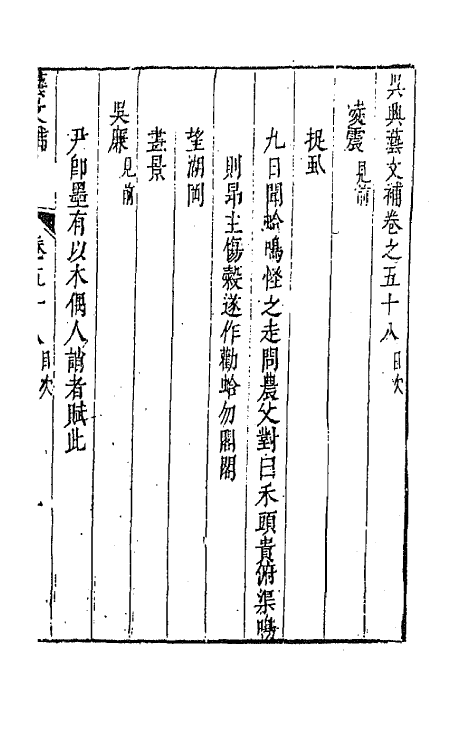 吳興藝文補卷之五十八目次
凌震見前
捉虱
九日聞蛤鳴怪之走問農父對曰禾頭貴俯渠鳴
則昂主傷穀遂作勸蛤勿閣閣
望湖岡
盡景
吳𠫵見前
尹即墨有以木偶人誚者賦此
藝文補
卷五十八目次
一